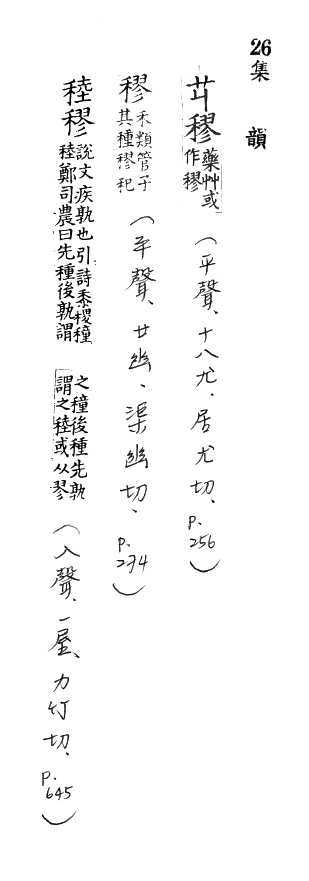 26集韻
艼穋藥艸或作穋(平聲、十八尤、居尤切、p.256)
穋禾類管子其種穋杞(平聲、廿幽、渠幽切、p.274)
稑穋說文疾孰也引詩黍稷種稑鄭司農曰先種後孰謂之穜後種先孰謂之稑或从翏(入聲、一屋、力竹切、p.645)